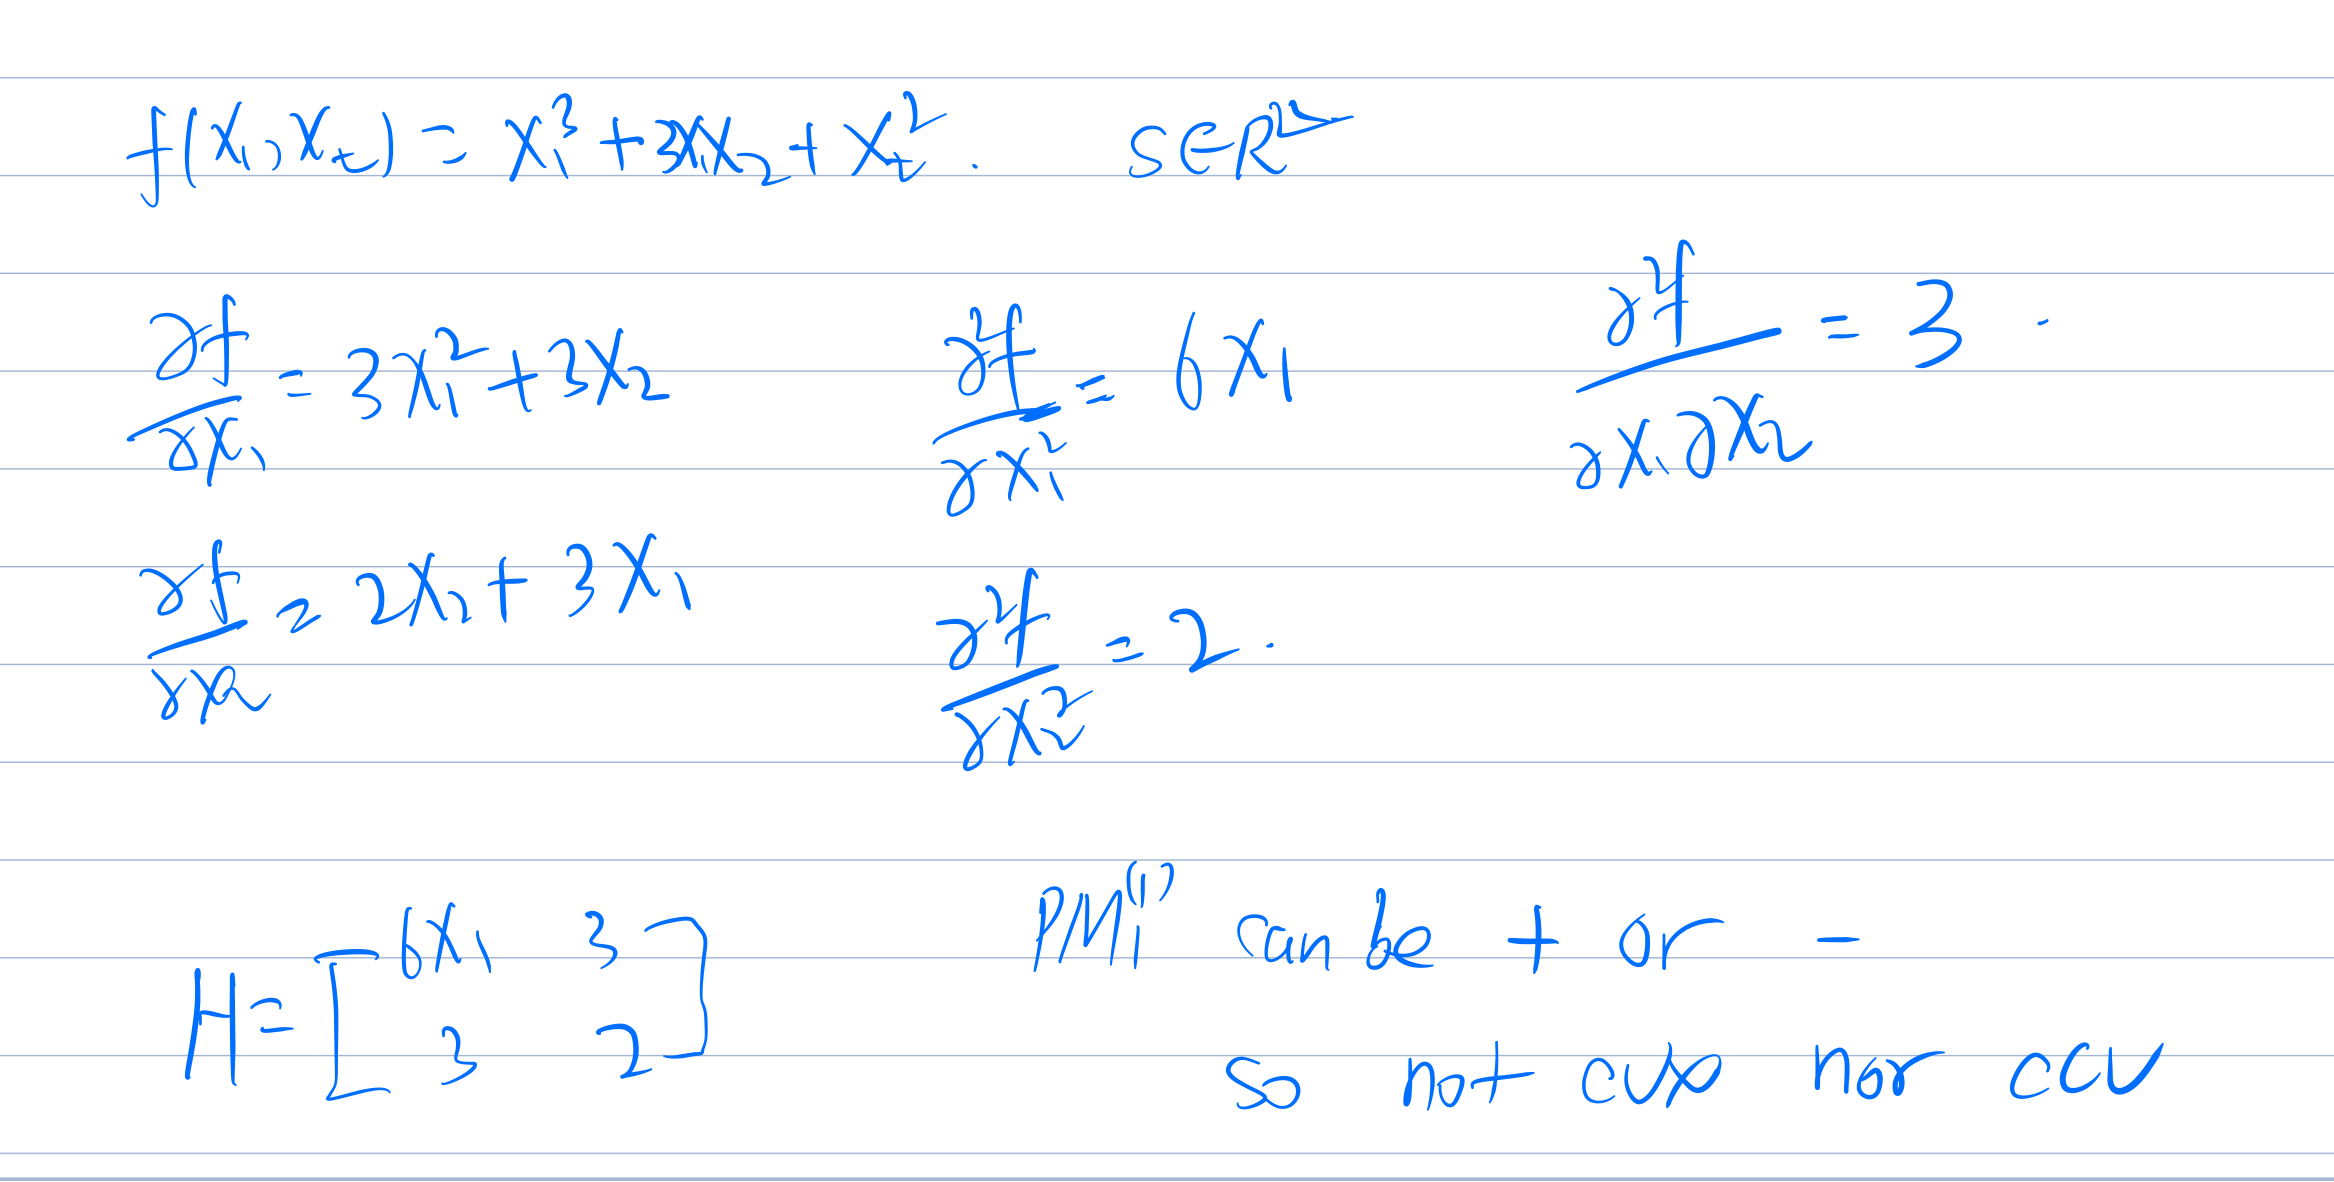 f(x₁, x₂) = x₁³ + 3x₁x₂ + x₂². S∈R²
∂f/∂x₁ = 3x₁² + 3x₂  ∂²f/∂x₁² = 6x₁  ∂²f/∂x₁∂x₂ = 3.
∂f/∂x₂ = 2x₂ + 3x₁  ∂²f/∂x₂² = 2.
H = [6x₁ 3; 3 2]  PM₁⁽¹⁾ can be + or −
so not cvx nor ccv